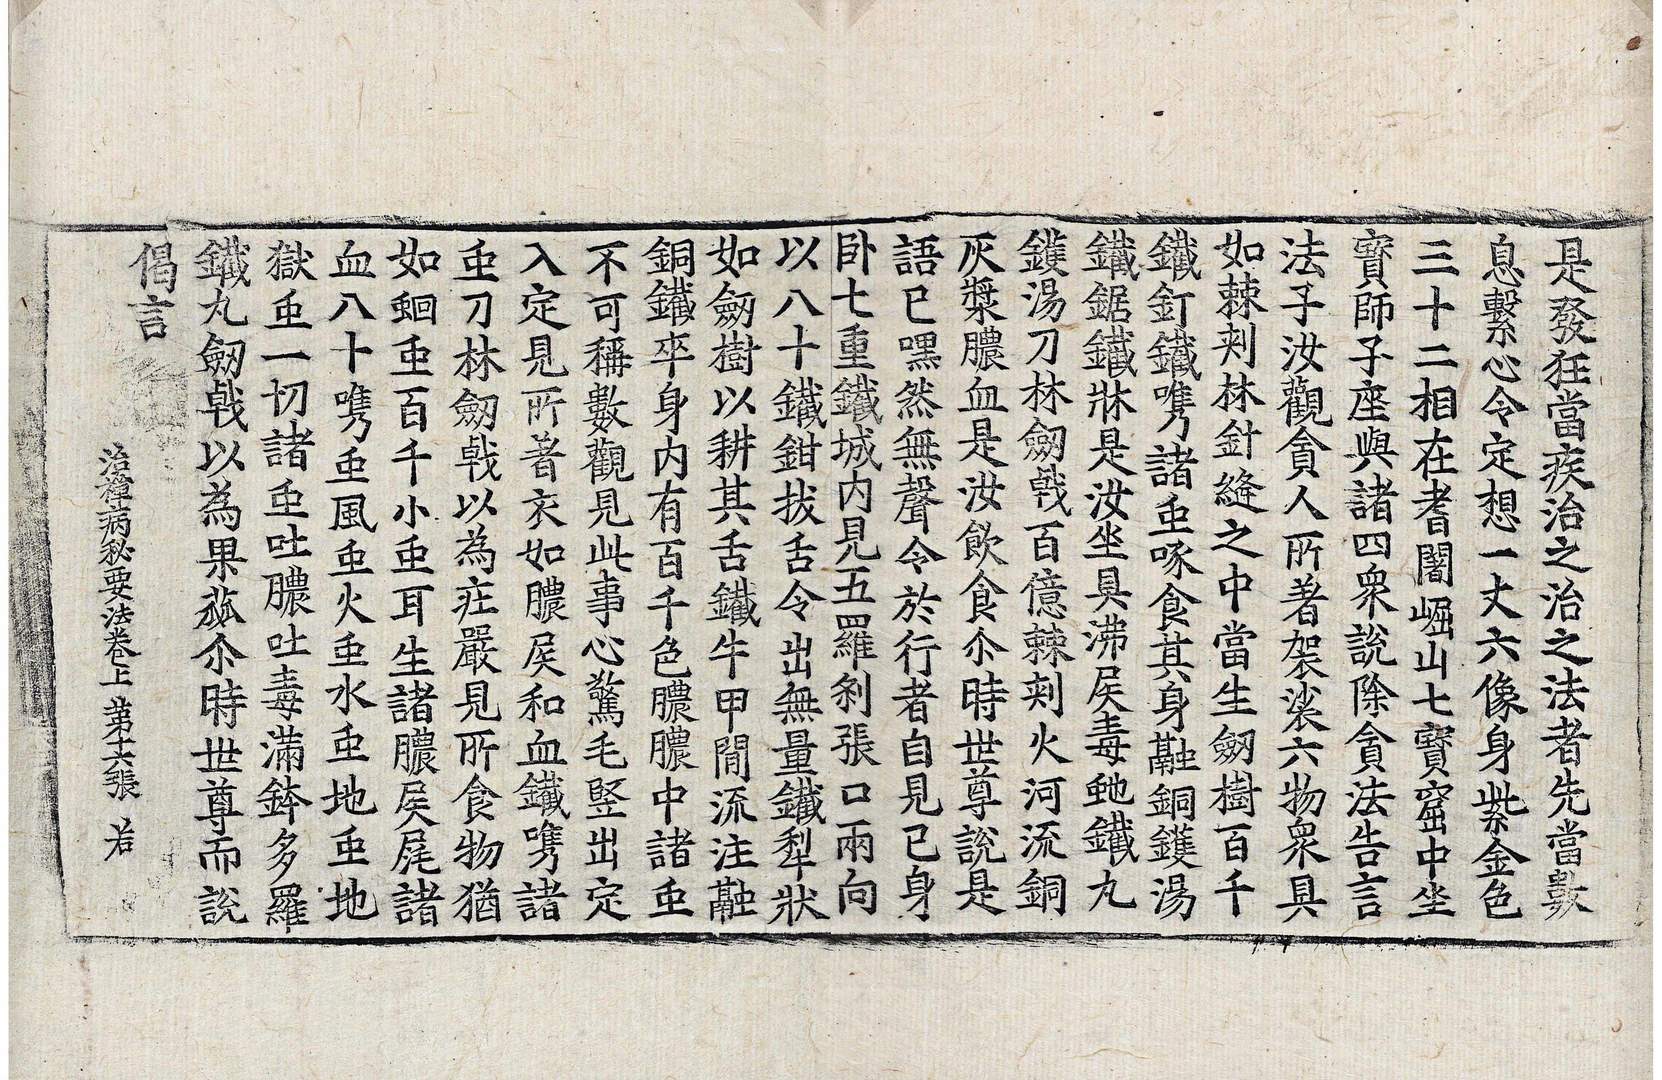 是發狂當疾治之治之法者先當數
息繫心令定想一丈六像身紫金色
三十二相在耆闍崛山七寶窟中坐
寶師子座與諸四衆說除貪法告言
法子汝觀貪人所著袈裟六物衆具
如棘刾林針縫之中當生劒樹百千
鐵釘鐵㭰諸䖝啄食其身融銅鑊湯
鐵鋸鐵牀是汝坐具沸屎毒虵鐵丸
鑊湯刀林劒戟百億棘刾火河流銅
灰漿膿血是汝飲食尒時世尊說是
語已嘿然無聲令於行者自見已身
卧七重鐵城内見五羅刹張口兩向
以八十鐵鉗拔舌令出無量鐵犁狀
如劒樹以耕其舌鐵牛甲間流注融
銅鐵卒身内有百千色膿膿中諸䖝
不可稱數觀見此事心驚毛竪出定
入定見所著衣如膿屎和血鐵㭰諸
䖝刀林劒戟以為疰嚴見所食物猶
如蛔䖝百千小䖝耳生諸膿屎㞙諸
血八十㗜䖝風䖝火䖝水䖝地䖝地
獄䖝一切諸䖝吐膿吐毒滿鉢多羅
鐵丸劒戟以為果蓏尒時世尊而說
偈言
治禪病秘要法卷上 第十六張 若